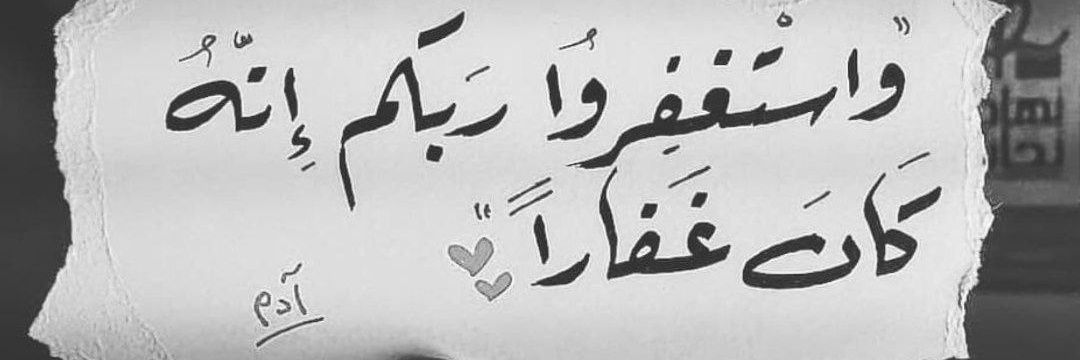 "وَاسْتَغفِروُا رَبَكُم إِنّهُ
كَانَ غَفَاراً"
آدم